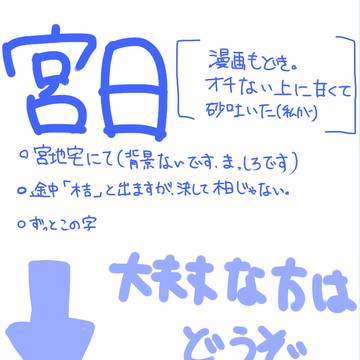 宮日
漫画もどき。
オチない上に甘くて
砂吐いた(私が)
○宮地宅にて(背景ないです、まっしろです)
○途中「桔」と出ますが、決して相じゃない。
○ずっとこの字
大丈夫な方は
どうぞ